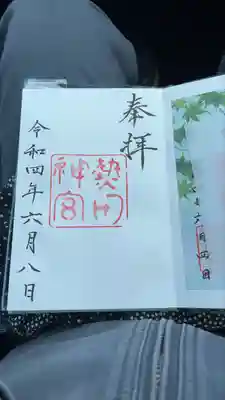 奉拝
熱田
神宮
令和四年六月八日
月四日